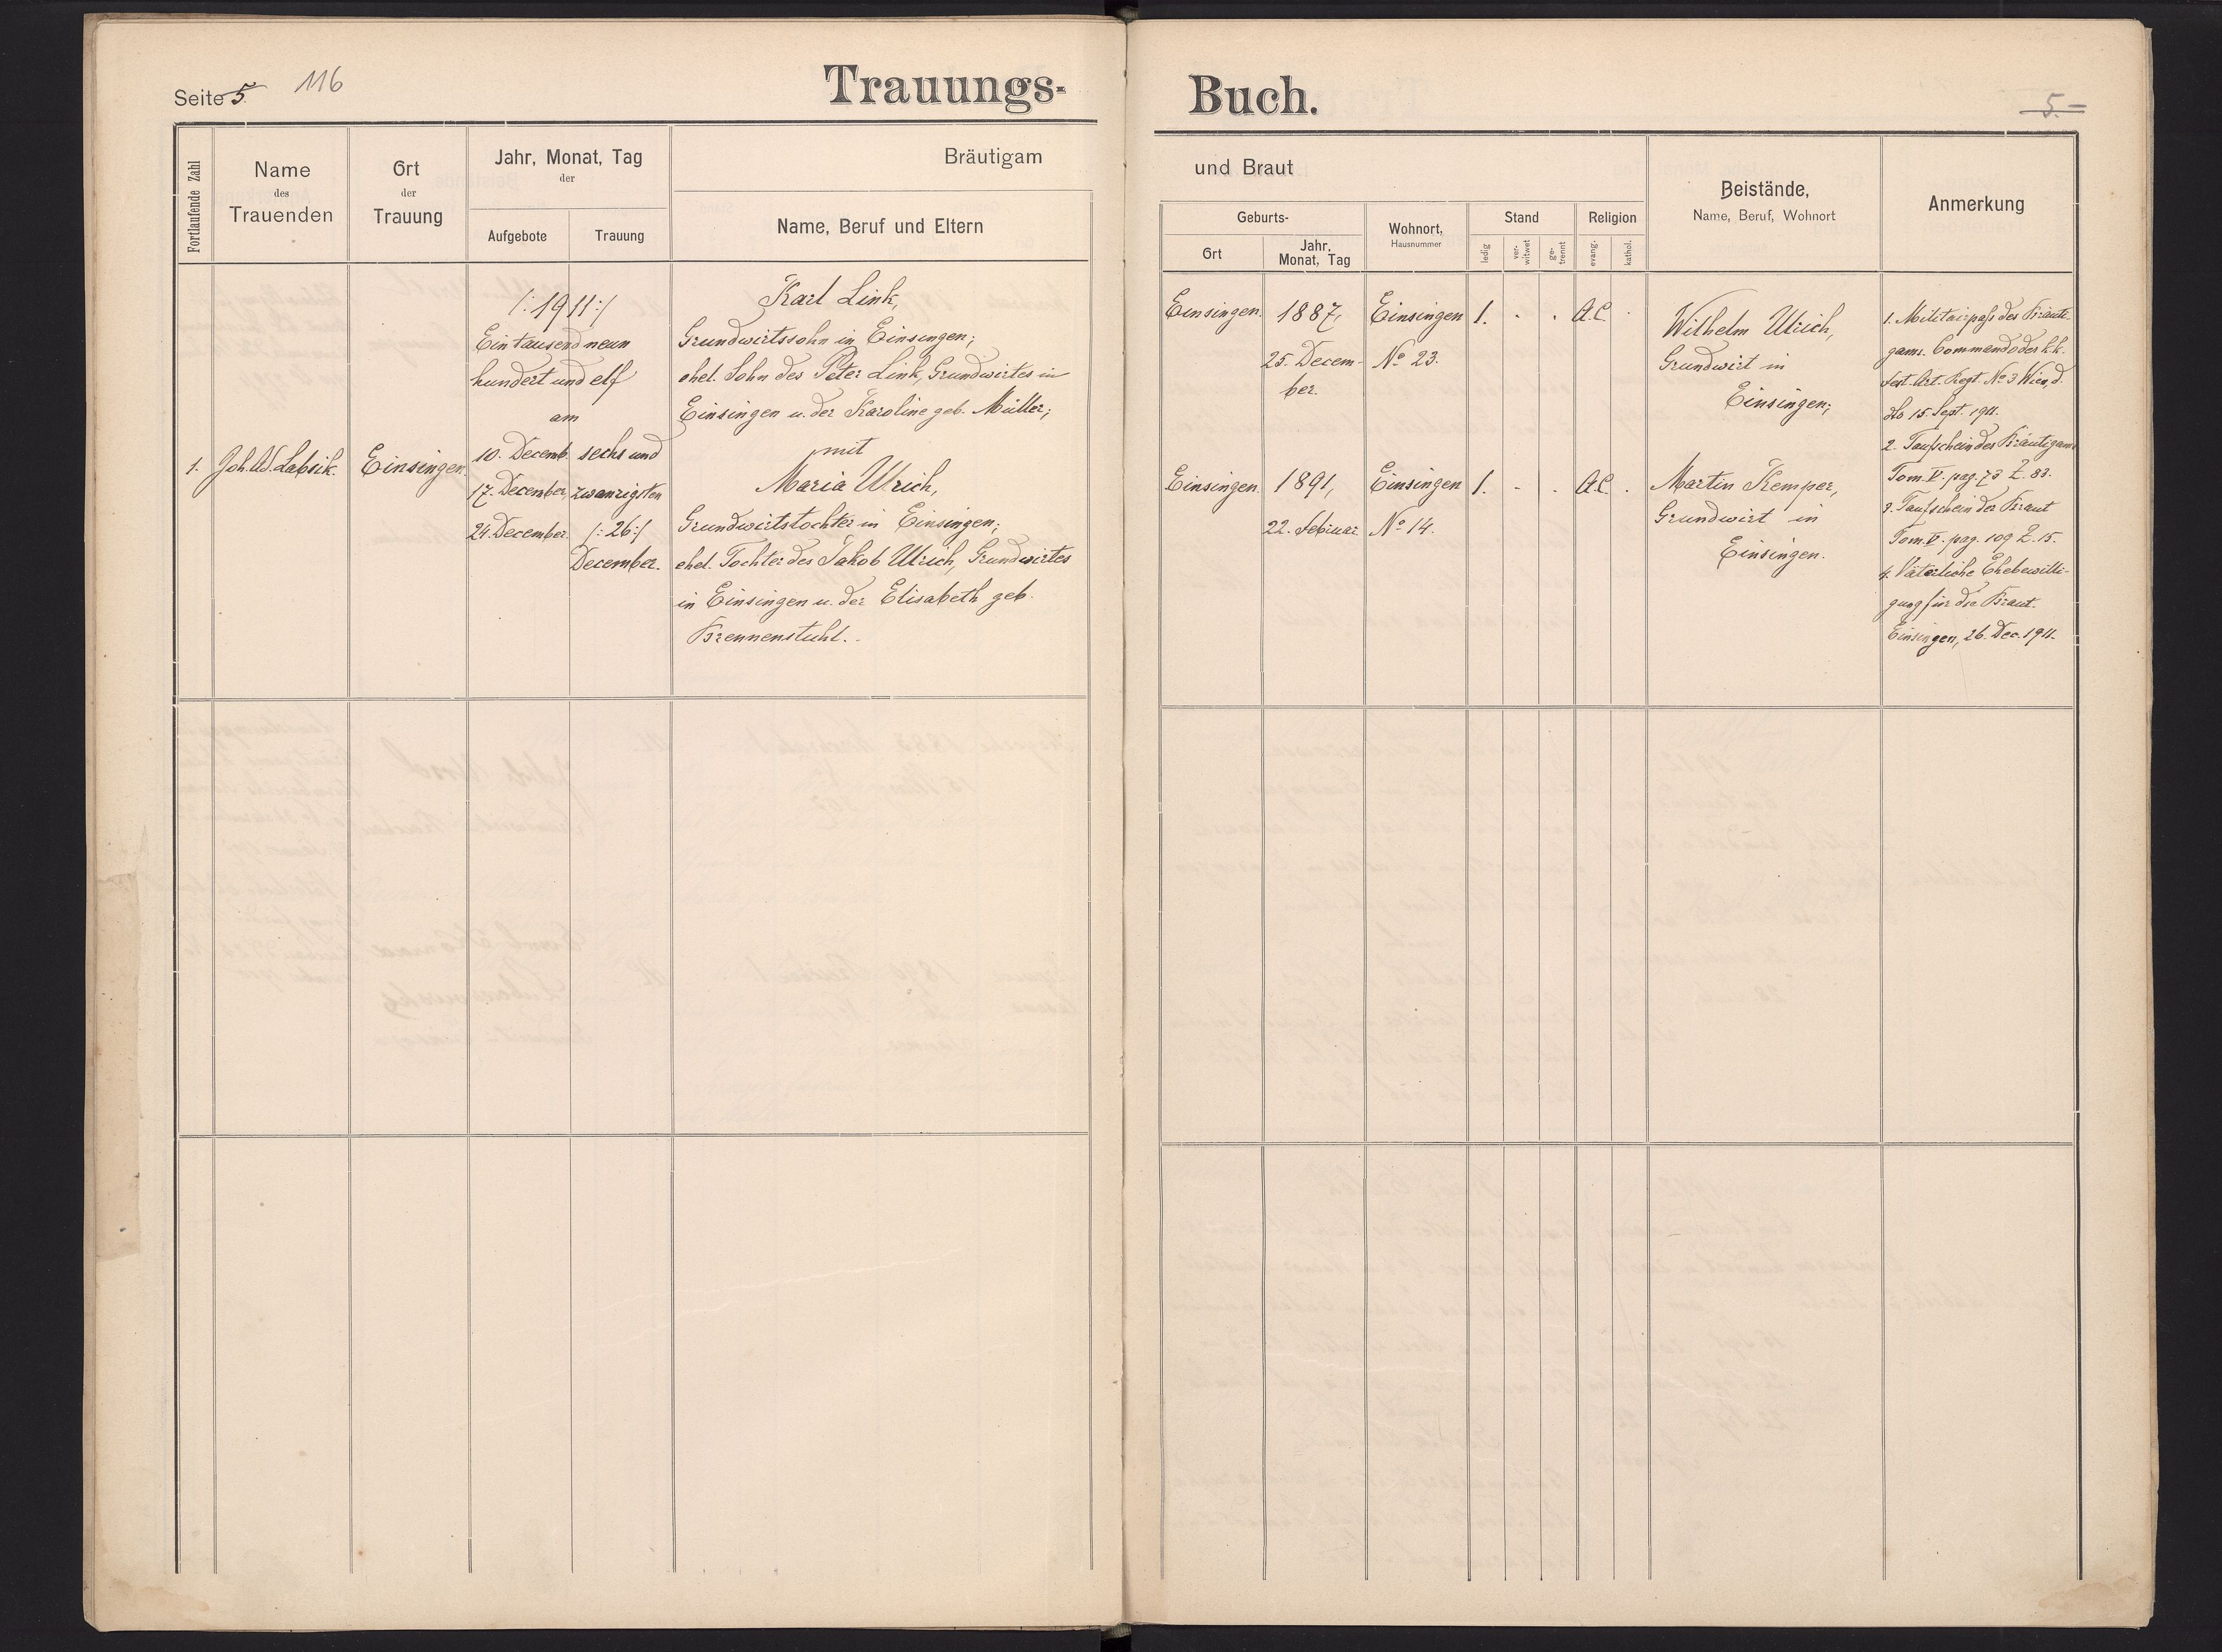 Seite 5. 116
Trauungs-
Fortlaufende Zahl
Name
des
Trauenden
Ort
der
Trauung
Jahr, Monat, Tag
der
Aufgebote
Trauung
Bräutigam
Name, Beruf und Eltern
1.
Joh. Ad. Labsik.
Einsingen.
/: 1911 :/
Ein tausend neun
hundert und elf
am
10. Decemb.
17. December
24. December.
sechs und
zwanzigsten
/: 26 :/
December.
Karl Link,
Grundwirtssohn in Einsingen;
ehel. Sohn des Peter Link, Grundwirtes in
Einsingen u. der Karoline geb. Müller;
mit
Maria Ulrich,
Grundwirtstochter in Einsingen;
ehel. Tochter des Jakob Ulrich, Grundwirtes
in Einsingen u. der Elisabeth geb.
Brennenstuhl.
Buch.
5.
und Braut
Geburts-
Ort
Jahr,
Monat, Tag
Wohnort,
Hausnummer
Stand
ledig
ver-
witwet
ge-
trennt
Religion
evang.
kathol.
Beistände,
Name, Beruf, Wohnort
Anmerkung
Einsingen.
1887,
25. Decem-
ber.
Einsingen
No 23.
1. - . A.C. .
Wilhelm Ulrich,
Grundwirt in
Einsingen;
Einsingen.
1891,
22. Februar.
Einsingen
No 14.
1. - . A.C. .
Martin Kemper,
Grundwirt in
Einsingen.
1. Militairpaß des Bräuti-
gams. Commando des k.k.
Fest. Art. Regt. No 3 Wien, d.
dto 15. Sept. 1911.
2. Taufschein des Bräutigams
Tom. V. pag. 73 Z. 83.
3. Taufschein der Braut
Tom. V. pag. 109 Z. 15.
4. Väterliche Ehebewilli-
gung für die Braut.
Einsingen, 26. Dec. 1911.